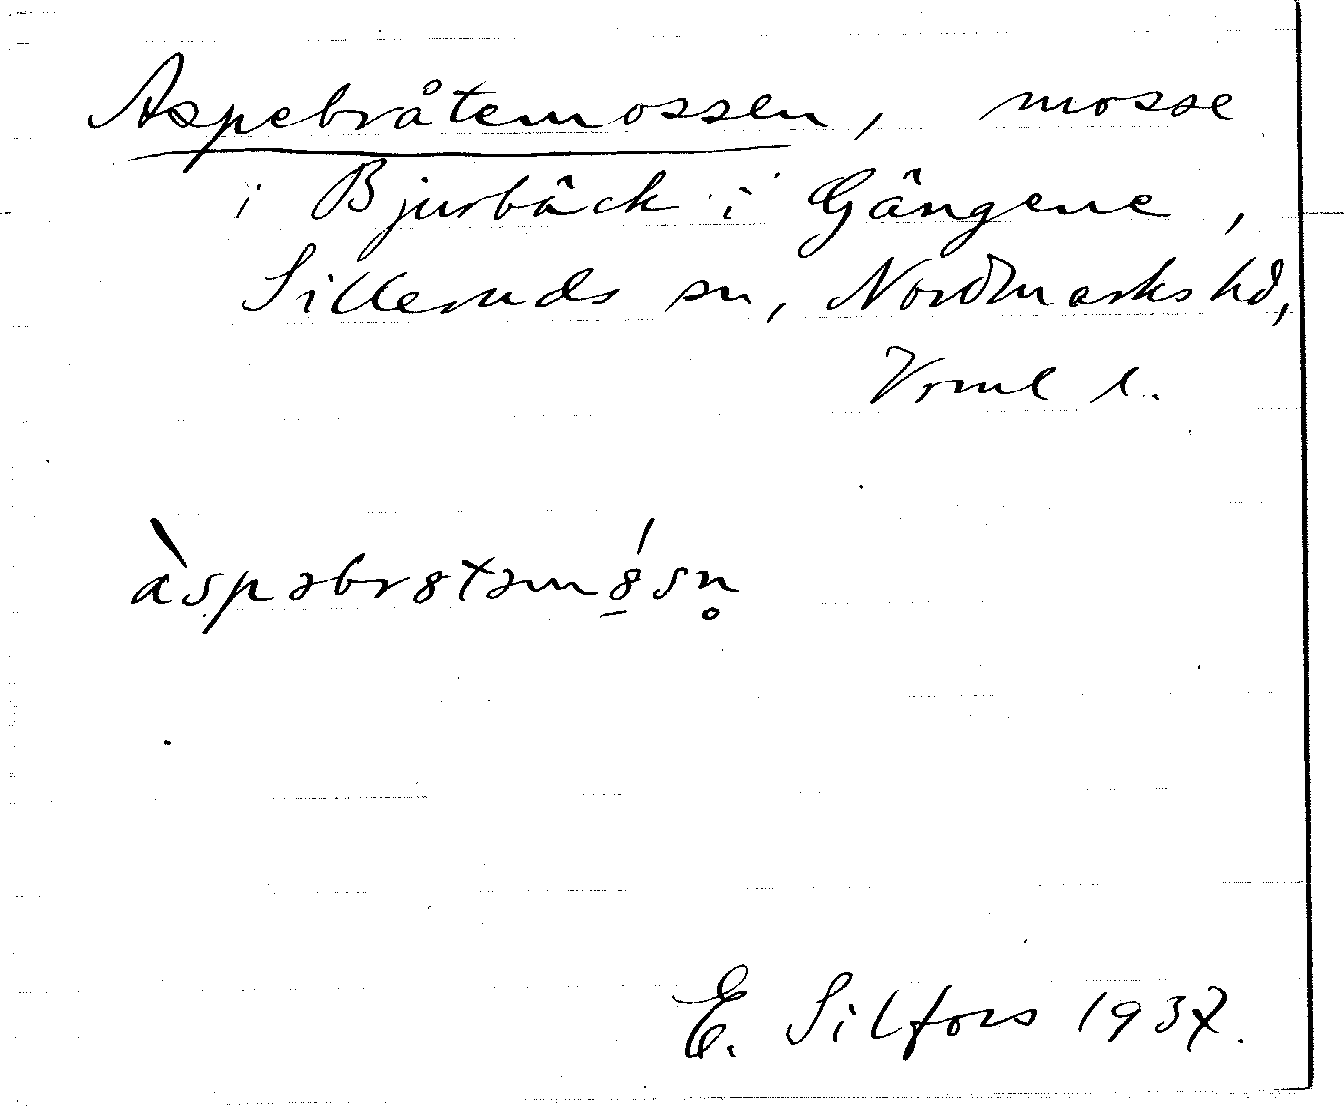 Aspebråtemossen, mosse
i Bjurbäck i Gängene,
Silleruds sn, Nordmarks hd,
Vrml l.
àspəbr8təmó̱8sn̥
E. Silfors 1937.